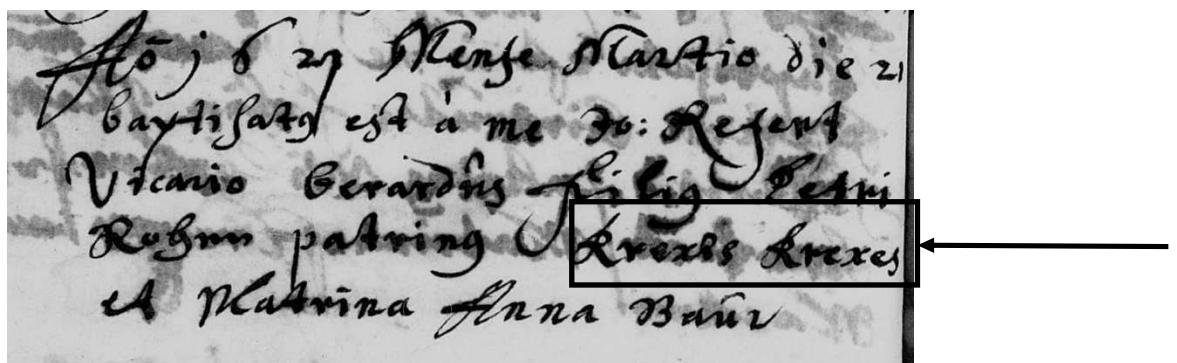 Aõ j6 27 Mense Martio die 21
baptisatus est à me Jo: Resent
Vicario Gerardus Filius Petri
Rohnn patrinus Krexes Krexes
et Matrina Anna Baur